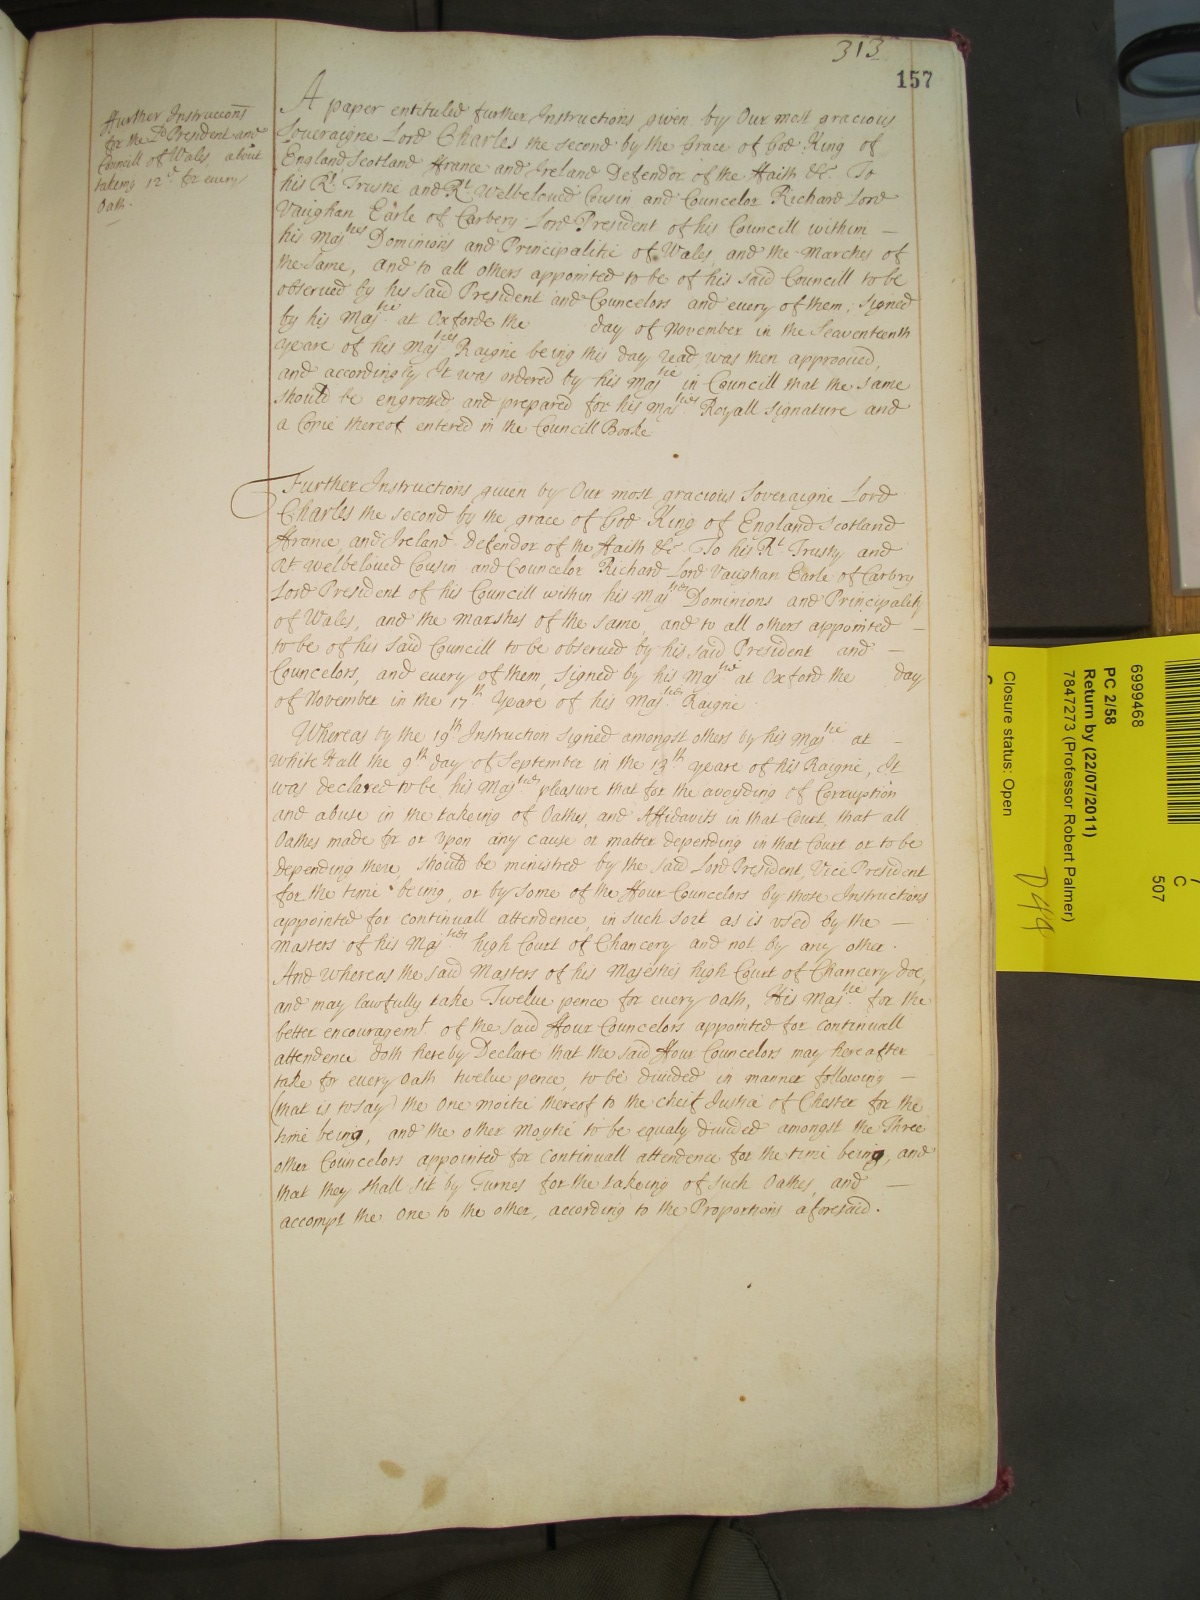 313
157
ffurther Instruccons
for the Ld President and
Councill of Wales about
takeing 12d for every
Oath.
A paper entituled further Instructions given by Our most gracious
Soveraigne Lord Charles the second by the Grace of God King of
England Scotland ffrance and Ireland Defendor of the ffaith &c To
his Rt Trustie and Rt Welbeloued Cousin and Councelor Richard Lord
Vaughan Earle of Carbery Lord President of his Councill within —
his Majties Dominions and Principalitie of Wales, and the Marches of
the same, and to all others appointed to be of his said Councill to be
observed by his said President and Councelors and every of them; Signed
by his Majtie at Oxforde the day of November in the Seaventeenth
yeare of his Majties Raigne being this day read was then approoved,
and accordingly It was ordered by his Majtie in Councill that the same
should be engrossed and prepared for his Majties Royall signature and
a Copie thereof entered in the Councill Booke
Further Instructions given by Our most gracious Soveraigne Lord
Charles the second by the grace of God King of England Scotland
ffrance and Ireland Defendor of the ffaith &c To his Rt Trusty and
Rt Welbeloved Cousin and Councelor Richard Lord Vaughan Earle of Carbry
Lord President of his Councill within his Majties Dominions and Principality
of Wales, and the Marshes of the same, and to all others appointed —
to be of his said Councill to be observed by his said President and —
Councelors, and every of them, Signed by his Majtie at Oxford the day
of November in the 17th Yeare of his Majties Raigne.
Whereas by the 19th Instruction signed amongst others by his Majtie at —
White Hall the 9th day of September in the 13th yeare of his Raigne, It
was declared to be his Majties pleasure that for the avoyding of Corruption
and abuse in the takeing of Oathes, and Affidavits in that Court, that all
Oathes made for or upon any cause or matter depending in that Court or to be
depending there, should be ministred by the said Lord President, Vice President
for the time being, or by some of the ffour Councelors by those Instructions
appointed for continuall attendence, in such sort as is used by the —
Masters of his Majties high Court of Chancery and not by any other.
And whereas the said Masters of his Majesties high Court of Chancery doe,
and may lawfully take Twelve pence for every Oath, His Majtie for the
better encouragemt of the said ffour Councelors appointed for continuall
attendence doth hereby Declare that the said ffour Councelors may hereafter
take for every Oath twelve pence, to be divided in manner following —
(that is to say) the One moitie thereof to the cheif Justice of Chester for the
time being, and the other Moytie to be equaly divided amongst the Three
other Councelors appointed for Continuall attendence for the time being, and
that they shall sit by Turnes for the takeing of such Oathes, and —
accompt the One to the other, according to the Proportions aforesaid.
6999468
PC 2/58
Return by (22/07/2011)
7847273 (Professor Robert Palmer)
Closure status: Open
C
507